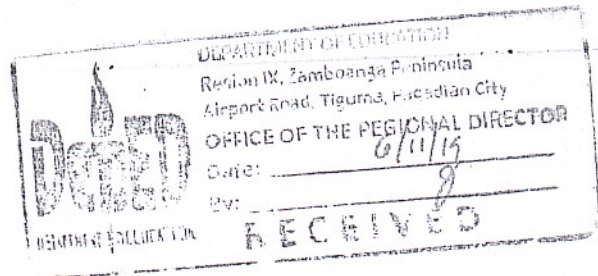 DEPARTMENT OF EDUCATION
Region IX, Zamboanga Peninsula
Airport Road, Tiguma, Pagadian City
OFFICE OF THE REGIONAL DIRECTOR
Date: 6/11/19
By:
RECEIVED
DepED
DEPARTMENT OF EDUCATION